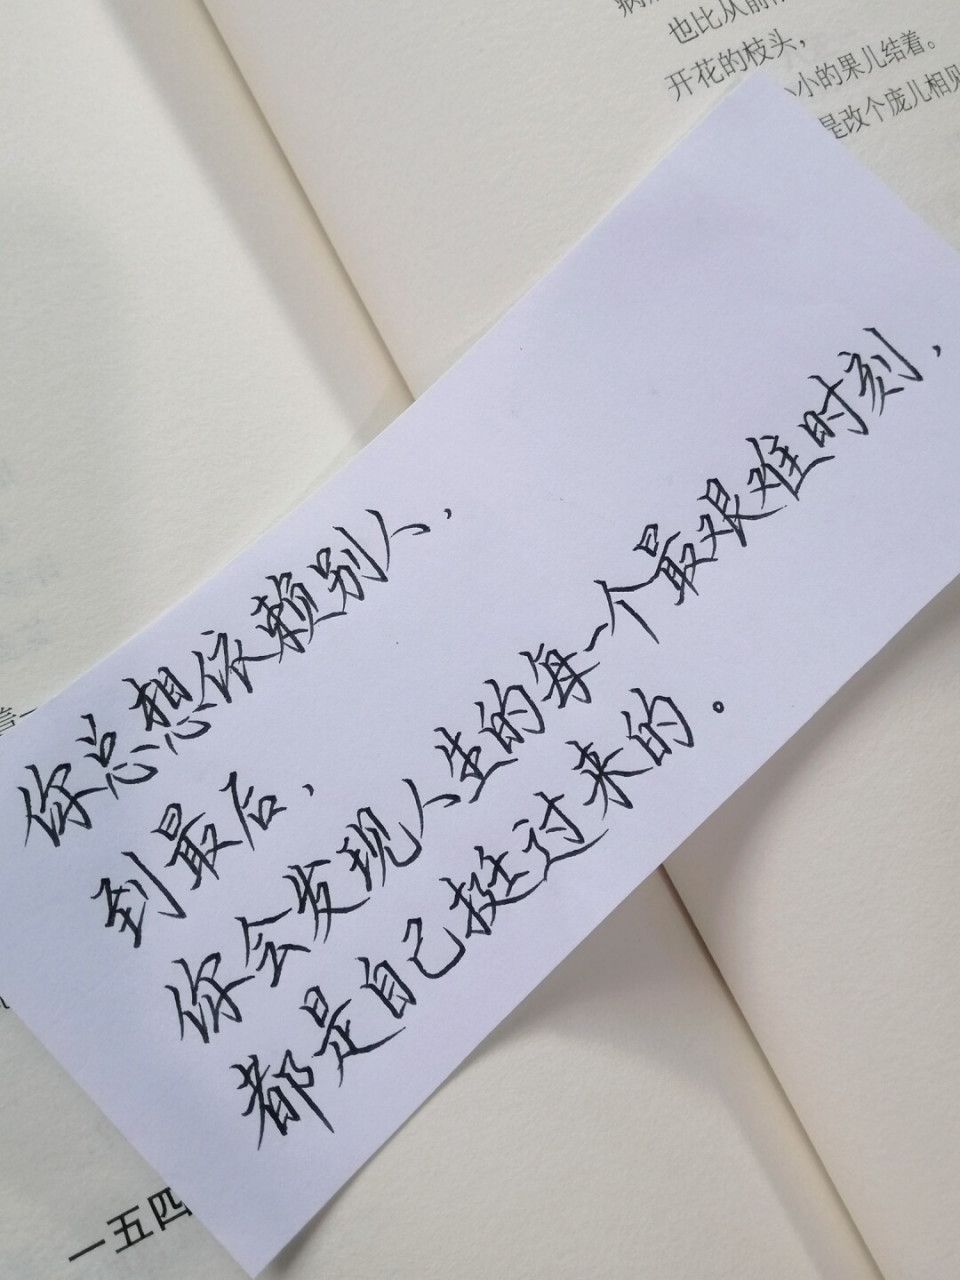 也比从前
开花的枝头，
小的果儿结着。
是改个庞儿相见
你总想依赖别人，
到最后，
你会发现人生的每一个最艰难时刻，
都是自己挺过来的。
一五四